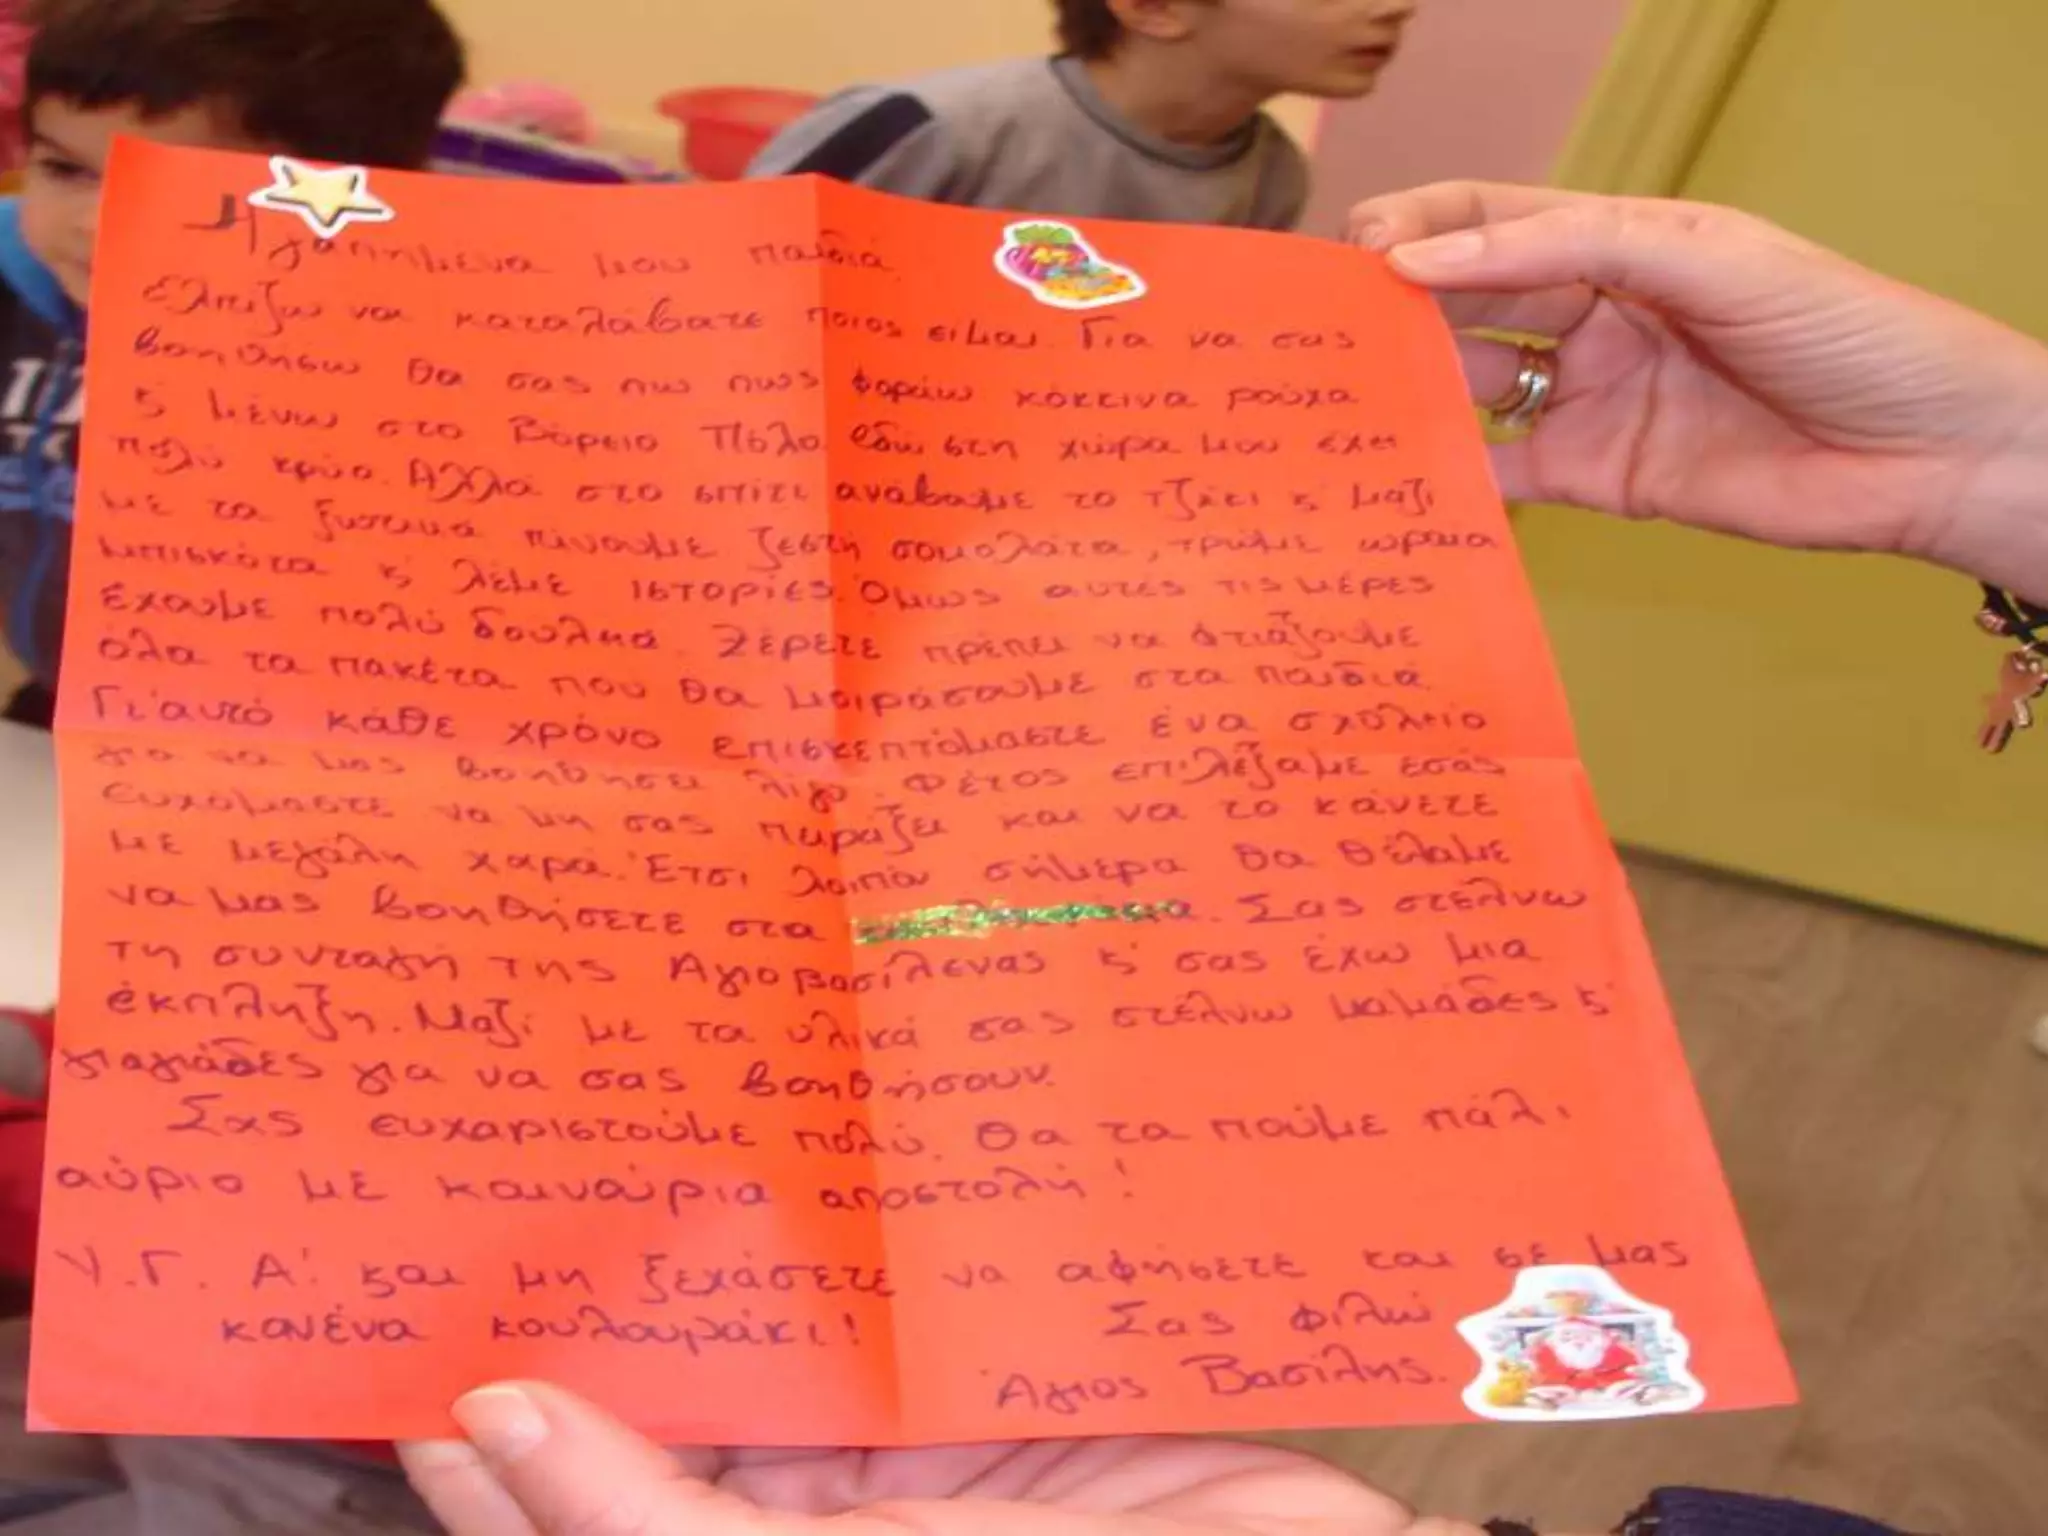 Αγαπημένα μου παιδιά
ελπίζω να καταλάβατε ποιος είμαι. Για να σας
βοηθήσω θα σας πω πως φοράω κόκκινα ρούχα
ϗ μένω στο Βόρειο Πόλο. Εδώ στη χώρα μου έχει
πολύ κρύο. Αλλά στο σπίτι ανάβουμε το τζάκι ϗ μαζί
με τα ξωτικά πίνουμε ζεστή σοκολάτα, τρώμε ωραία
μπισκότα ϗ λέμε ιστορίες. Όμως αυτές τις μέρες
έχουμε πολύ δουλειά. Ξέρετε πρέπει να φτιάξουμε
όλα τα πακέτα που θα μοιράσουμε στα παιδιά.
Γι'αυτό κάθε χρόνο επισκεπτόμαστε ένα σχολείο
για να μας βοηθήσει λίγο. Φέτος επιλέξαμε εσάς
ευχόμαστε να μη σας πειράζει και να το κάνετε
με μεγάλη χαρά. Έτσι λοιπόν σήμερα θα θέλαμε
να μας βοηθήσετε στα. Σας στέλνω
τη συνταγή της Αγιοβασίλενας ϗ σας έχω μια
έκπληξη. Μαζί με τα υλικά σας στέλνω μαμάδες ϗ
γιαγιάδες για να σας βοηθήσουν.
Σας ευχαριστούμε πολύ. Θα τα πούμε πάλι
αύριο με καινούρια αποστολή!
Υ.Γ. Α! και μη ξεχάσετε να αφήσετε και σε μας
κανένα κουλουράκι!
Σας φιλώ
Άγιος Βασίλης.